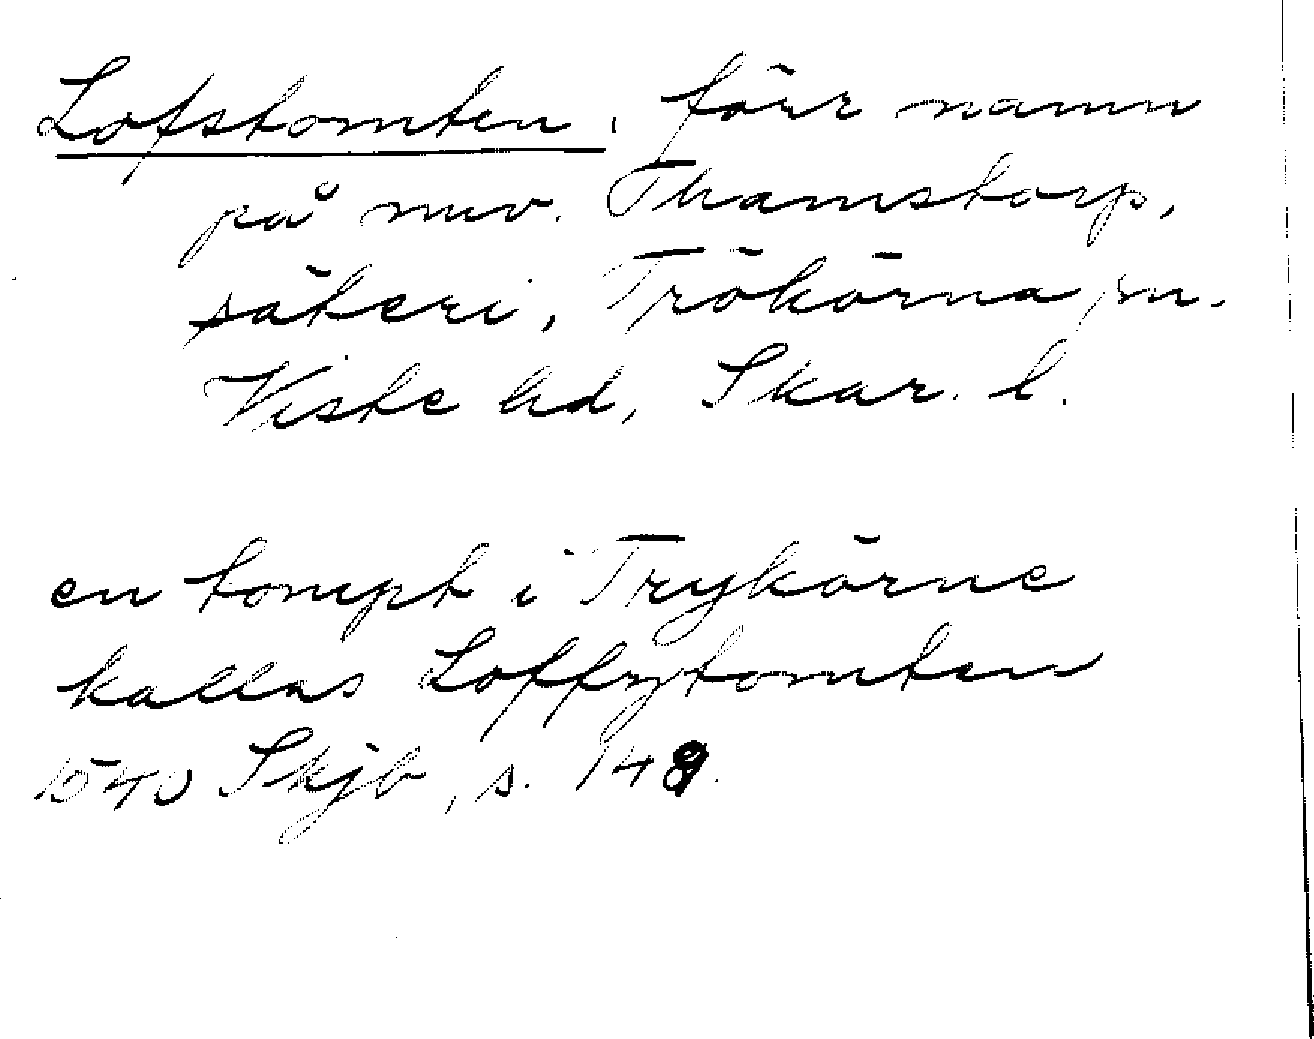 Lofstomten, förr namn
på nuv. Thamstorp,
säteri, Trökörna sn.
Viste hd, Skar. l.
en tompt i Trykörne
kallas Loffztomten
1540 Skjb, s. 148.